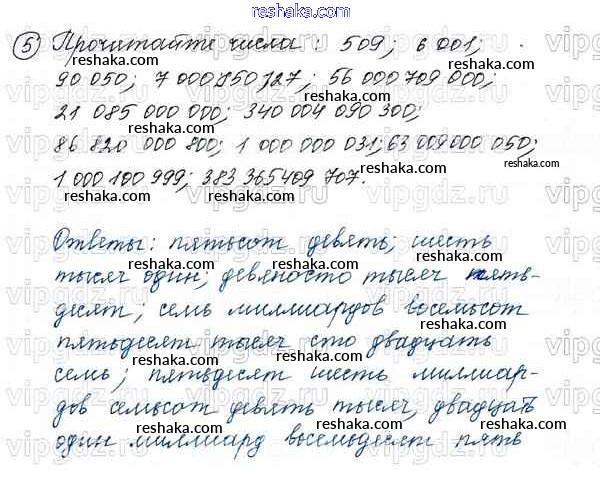 reshaka.com
5 Прочитайте числа: 509; 6 001;
90 050; 7 000 850 127; 56 000 709 000;
21 085 000 000; 340 004 090 300;
86 820 000 800; 1 000 000 031; 63 009 000 050;
1 000 100 999; 383 365 409 707.
Ответы: пятьсот девять; шесть
тысяч один; девяносто тысяч пять-
десят; семь миллиардов восемьсот
пятьдесят тысяч сто двадцать
семь; пятьдесят шесть миллиар-
дов семьсот девять тысяч, двадцать
один миллиард восемьдесят пять
reshaka.com
vipgdz.ru